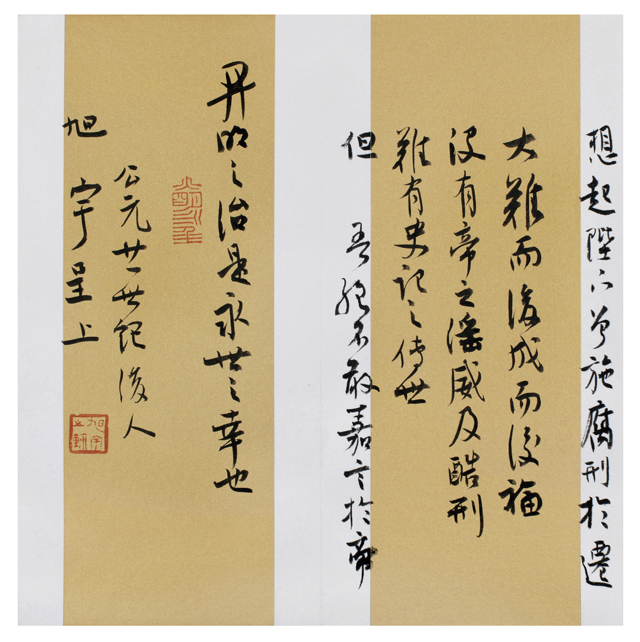 想起陛下曾施腐刑於遷
大難而後成而後福
沒有帝之淫威及酷刑
難有史記之傳世
但 吾絕不敢嘉言於帝
明之治是永世之幸也
公元廿一世紀後人
旭宇呈上